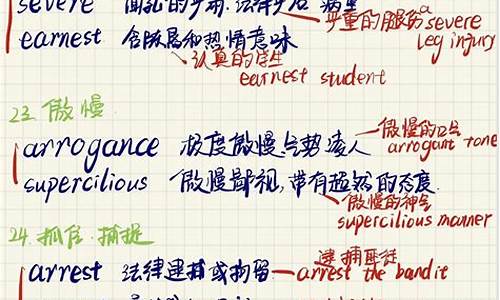 severe
严重的腿伤 a severe
leg injury
earnest 含
和热情意味
认真的学生
earnest student
23. 傲慢
arrogance 极度傲慢,气势凌人
傲慢的口气
arrogant tone
supercilious 傲慢鄙视,带有超然的态度
傲慢的神色
supercilious manner
24. 抓住.捕捉
arrest 法律逮捕或拘留
逮捕匪徒
arrest the bandit